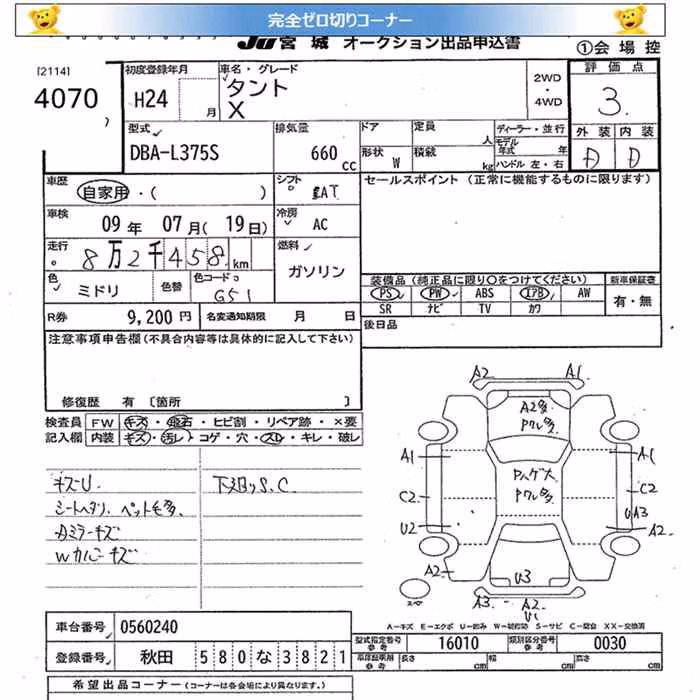 完全ゼロ切りコーナー
JU 宮城 オークション出品申込書 ①会場控
[2114]
4070
初度登録年月 H24 月
車名・グレード タント X
2WD ・ 4WD
評価点 3.
外装 D 内装 D
型式 DBA-L375S
排気量 660 cc
ドア 定員 人
形状 W 積載 kg
ディーラー・並行
モデル年式 年
ハンドル 左・右
車歴 自家用・( )
シフト
セールスポイント (正常に機能するものに限ります)
車検 09 年 07 月( 19 日)
冷房 AC
走行 8万2千458 km
燃料 ガソリン
色 ミドリ 色替 色コード G51
装備品(純正品に限り○をつけてください) 新車保証書
PS PW ABS エアB AW 有・無
SR ナビ TV カワ
R券 9,200 円 名変通知期限 月 日
後日品
注意事項申告欄(不具合内容等は具体的に記入して下さい)
修復歴 有 〔箇所 〕
検査員記入欄
FW キズ・飛石・ヒビ割・リペア跡・×要
内装 キズ・汚レ・コゲ・穴・スレ・キレ・破レ
キズU.
シートヘタリ、ペット毛多.
下廻りS.C.
Wカバーキズ
A2 A1
A2多
Pワレ多
A1 A1
Pハゲ大
Pワレ多
C2 C2
UA3
U2 A2
A2 U3
スペア
A3 A2
U1
A-キズ E-エクボ U-凹み W-補修跡 S-サビ C-腐食 XX-交換済
車台番号 0560240
型式指定番号 16010 類別区分番号 0030
登録番号 秋田 580な3821
車庫証明用参考 長さ cm 幅 cm 高さ cm
希望出品コーナー(コーナーは各会場により異なります。)